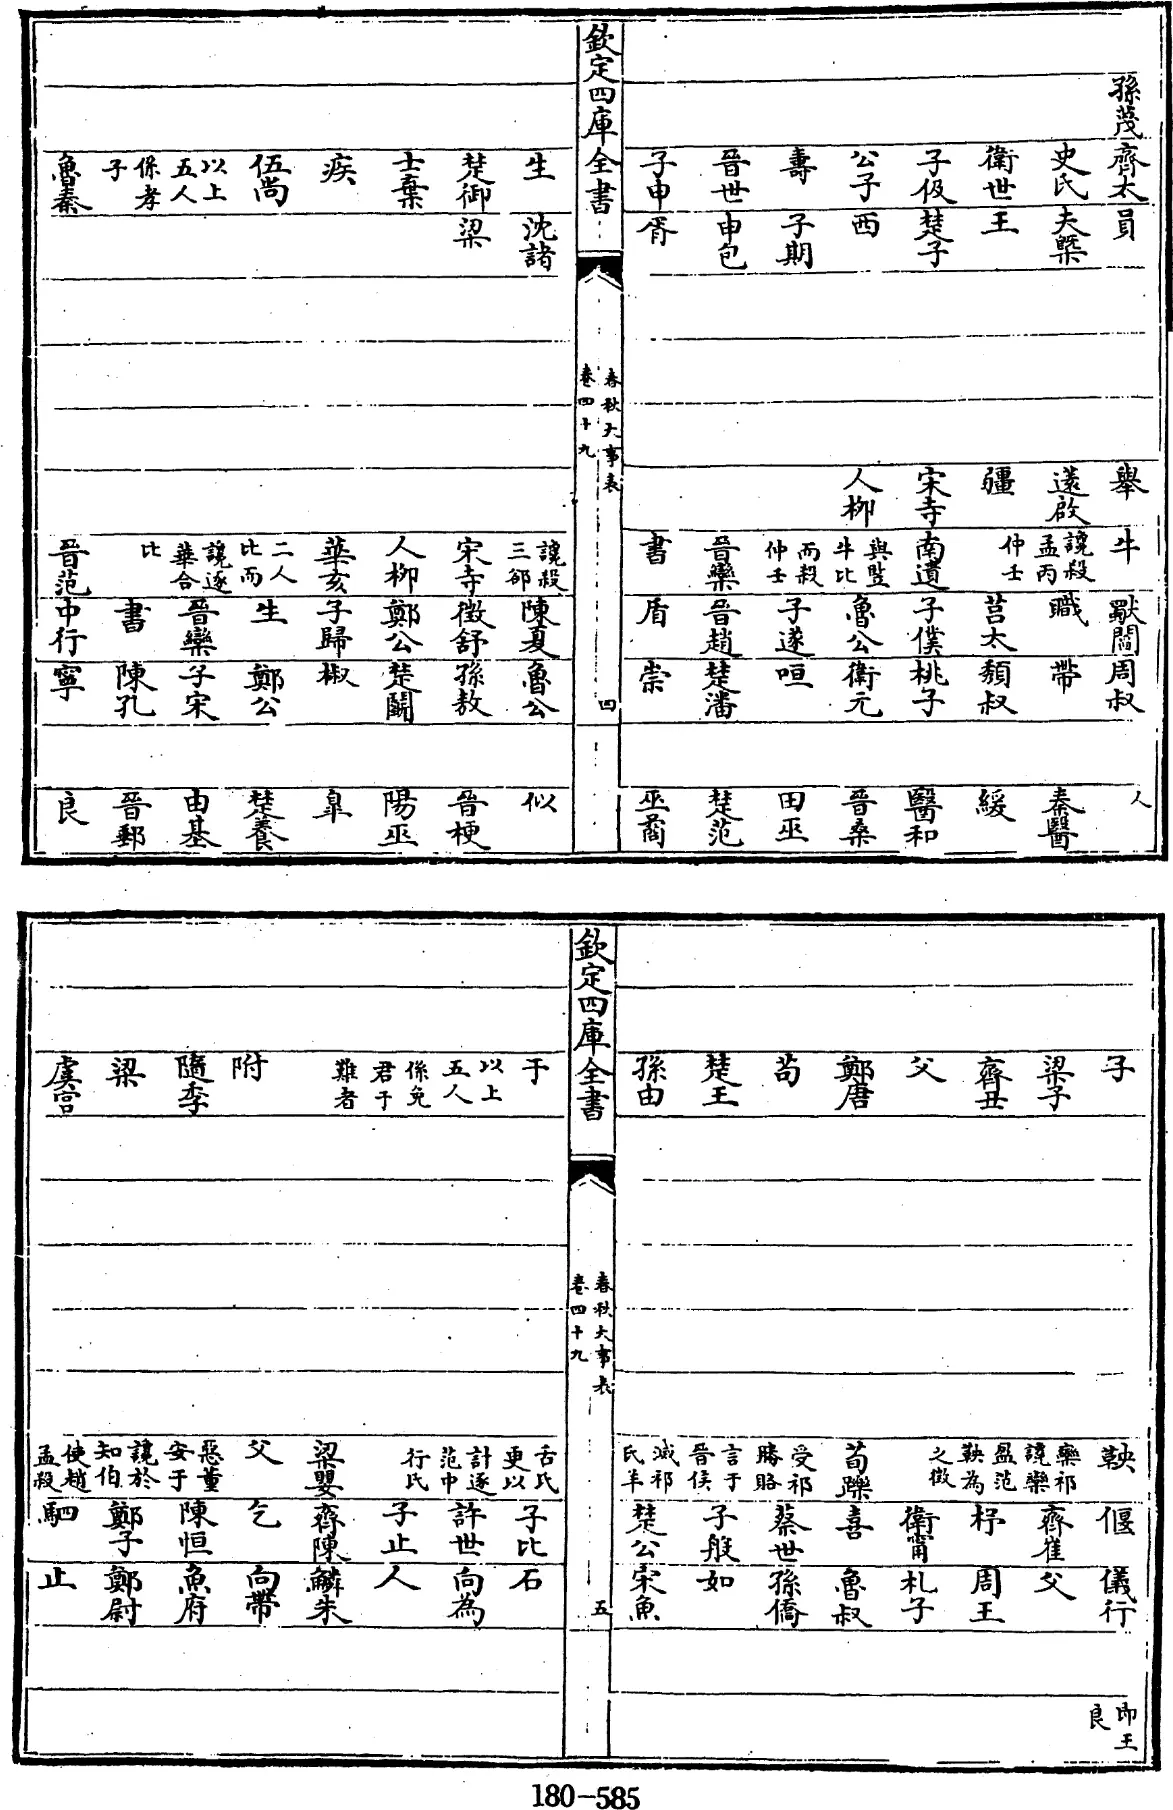 孫茂
齊太 史氏 衛世 子伋 公子 壽 晉世 子申
員 夫槩 王 楚子 西 子期 申包 胥
舉 薳啟 疆 宋寺 人柳
牛 讒殺 孟丙 仲壬 南遺 與豎 牛比 而殺 仲壬 晉欒 書
歜閻 職 莒太 子僕 魯公 子遂 晉趙 盾
周叔 帶 頹叔 桃子 衛元 咺 楚潘 崇
人 秦醫 緩 醫和 晉桑 田巫 楚范 巫矞
欽定四庫全書
春秋大事表
卷四十九
四
生 楚御 士棄 疾 伍尚 以上 五人 係孝 子 魯秦
沈諸 梁
讒殺 三郤 宋寺 人柳 華亥 二人 比而 讒逐 華合 比 晉范
陳夏 徵舒 鄭公 子歸 生 晉欒 書 中行
魯公 孫敖 楚鬭 椒 鄭公 子宋 陳孔 寧
似 晉梗 陽巫 臯 楚養 由基 晉郵 良
子 梁子 齊丑 父 鄭唐 苟 楚王 孫由
鞅 欒祁 讒欒 盈范 鞅為 之徵 荀躒 受祁 勝賂 言于 晉侯 滅祁 氏羊
偃 齊崔 杼 衛甯 喜 蔡世 子般 楚公
儀行 父 周王 札子 魯叔 孫僑 如 宋魚
即王 良
欽定四庫全書
春秋大事表
卷四十九
五
于 以上 五人 係免 君于 難者 附 隨季 梁 虞宫
舌氏 更以 計逐 范中 行氏 梁嬰 父 惡董 安于 讒於 知伯 使趙 孟殺
子比 許世 子止 齊陳 乞 陳恒 鄭子 駟
石 向為 人 鱗朱 向帶 魚府 鄭尉 止
180-585